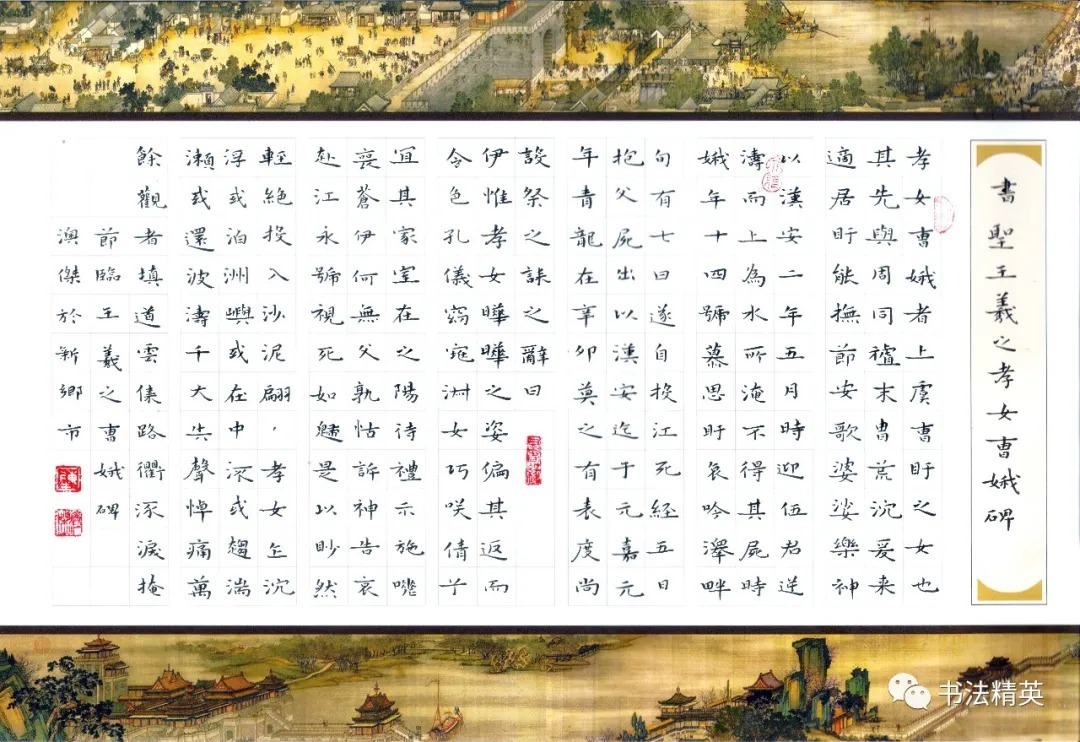 書聖王羲之孝女曹娥碑
孝女曹娥者上虞曹盱之女也
其先與周同禋末胄荒沉爰来
適居盱能撫節安歌婆娑樂神
以漢安二年五月時迎伍君逆
濤而上為水所淹不得其屍時
娥年十四號慕思盱哀吟澤畔
旬有七日遂自投江死經五日
抱父屍出以漢安迄于元嘉元
年青龍在辛卯莫之有表度尚
設祭之誄之辭曰
伊惟孝女曄曄之姿偏其返而
令色孔儀窈窕淑女巧咲倩兮
宜其家室在之陽待禮示施嗟
喪蒼伊何無父孰怙訴神告哀
赴江永號視死如歸是以眇然
輕絕投入沙泥翩，孝女乍沉
浮或泊洲嶼或在中深或趨湍
瀨或還波濤千夫失聲悼痛萬
餘觀者填道雲集路衢淚掩
節臨王羲之曹娥碑
澳傑於新鄉市
书法精英